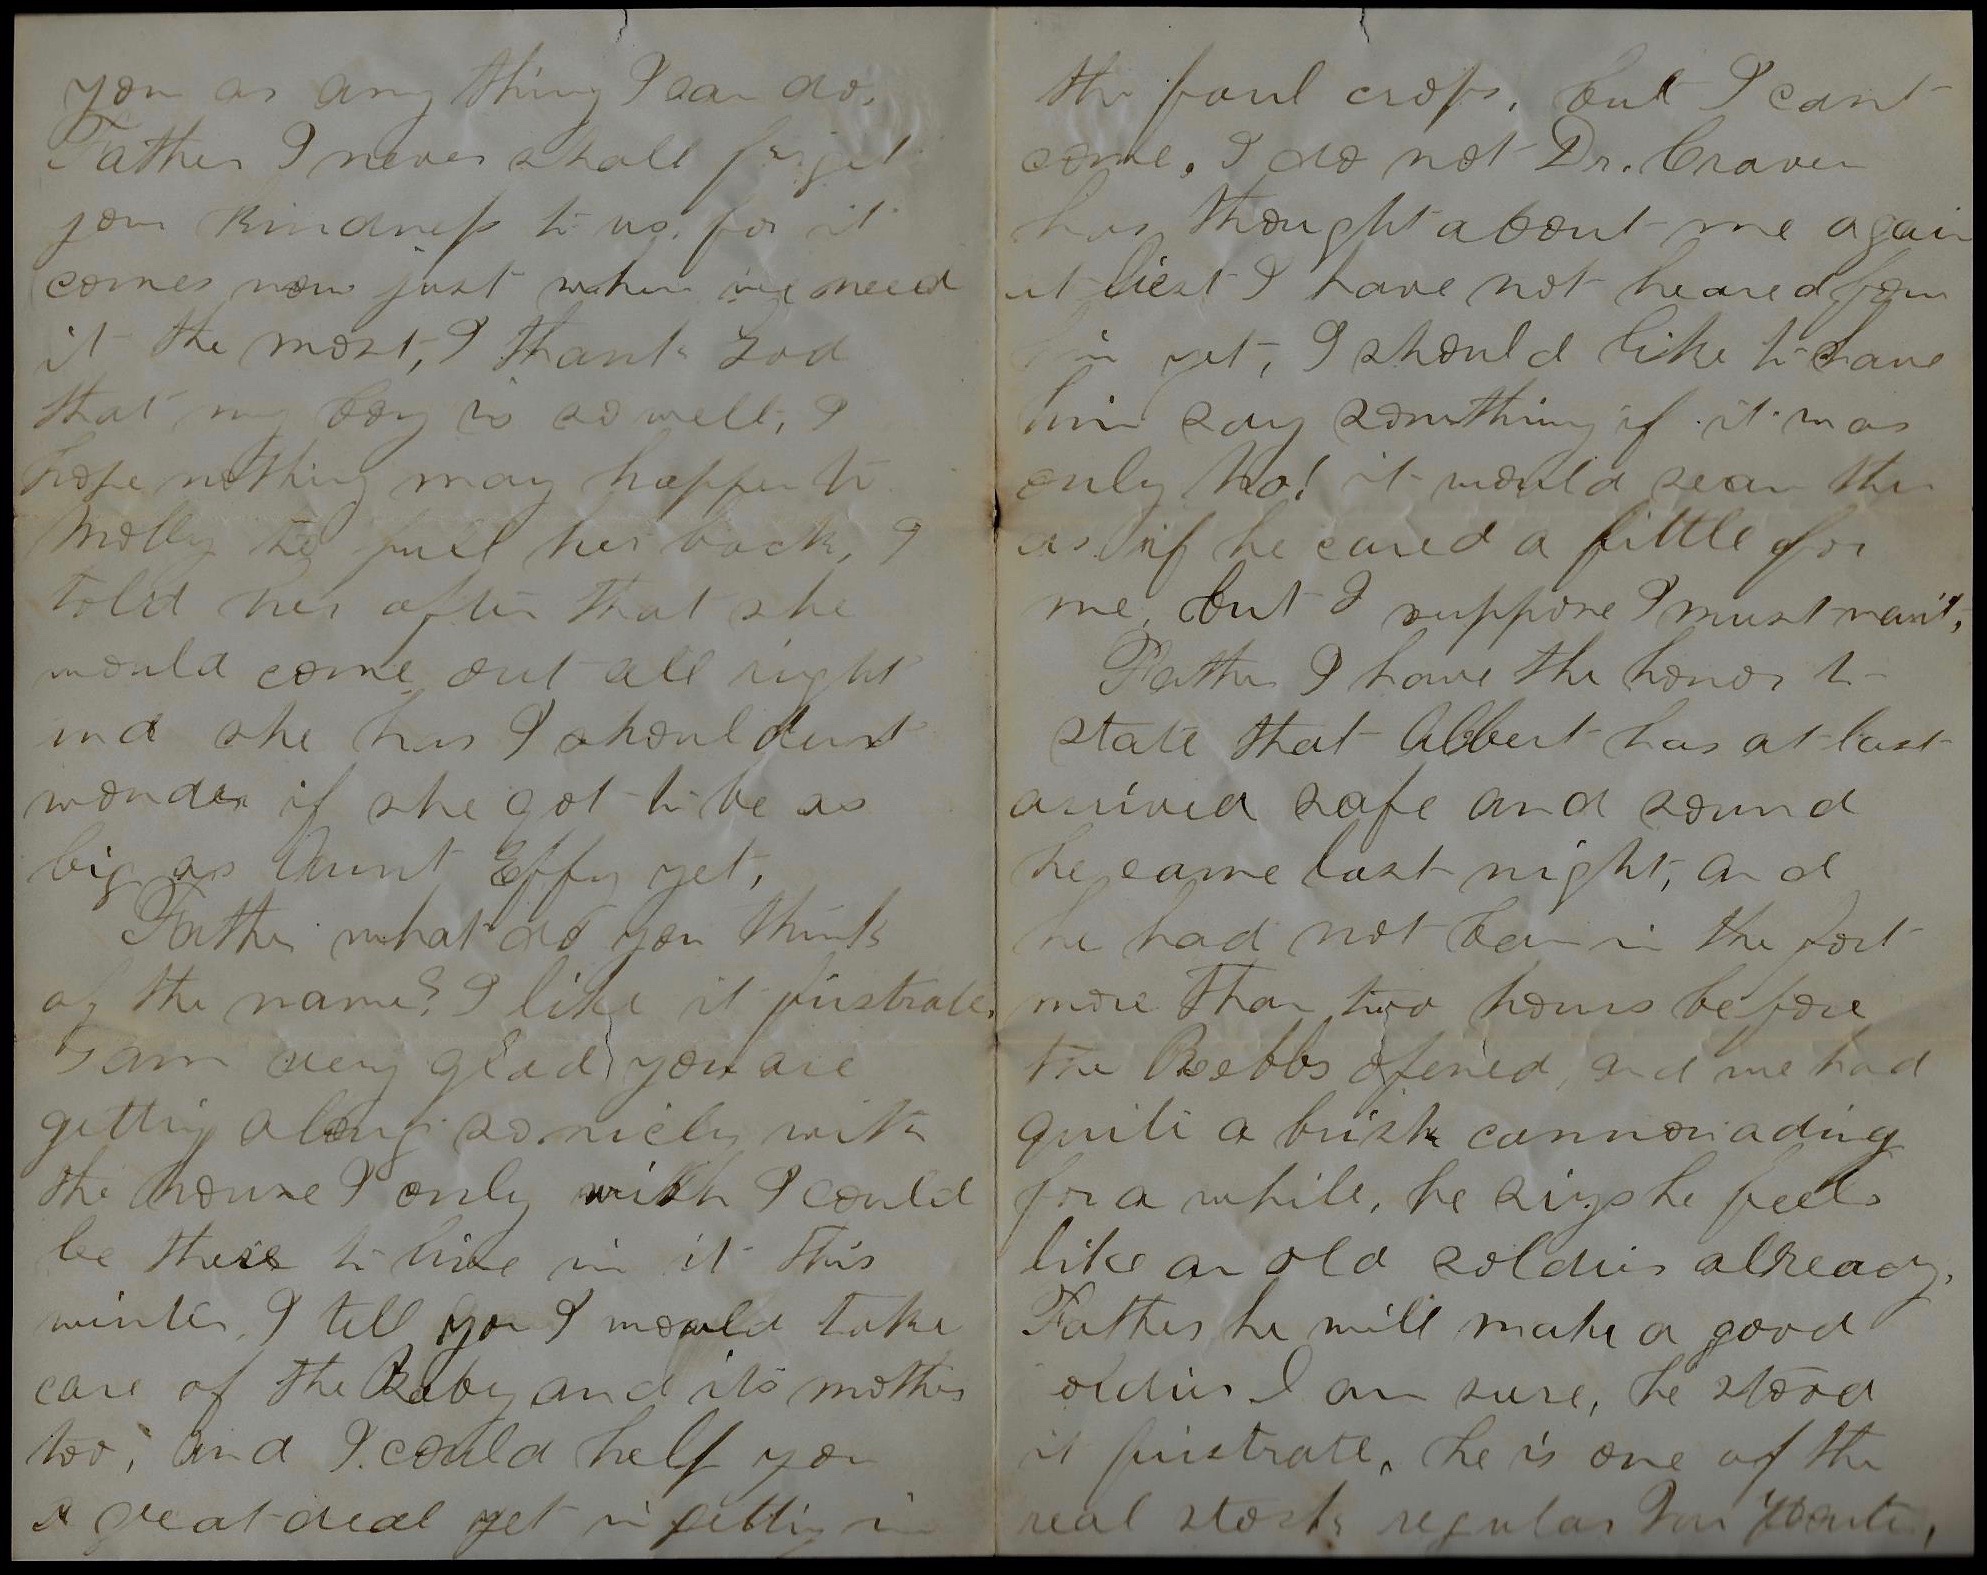 you as any thing I can do.
Father I never shall forget
your kindness to us, for it
comes now just when we need
it the most, I thank God
that my boy is so well, I
hope nothing may happen to
Molly to pull her back, I
told her after that she
would come out all right
and she has I shouldent
wonder if she got to be as
big as Aunt Effy yet,
Father what do you think
of the name? I like it firstrate.
I am very glad you are
getting along so nicely with
the house I only wish I could
be there to live in it this
winter, I tell you I would take
care of the Baby and its mother
too, and I could help you
a great deal yet in getting in
the crops, but I cant
come. I do not Dr. Craven
has thought about me again
at liest I have not heared from
him yet, I should like to have
him say somthing if it was
only No! it would seam then
as if he cared a little for
me, but I suppose I must wait,
Father I have the honor to
state that Albert has at last
arrived safe and sound
he came last night, and
he had not bean in the fort
more than two hours before
the Rebbs opened, and we had
quite a brisk cannonading
for a while, he says he feels
like an old soldier already,
Father he will make a good
soldier I am sure, he stood
it firstrate, he is one of the
real stock regular